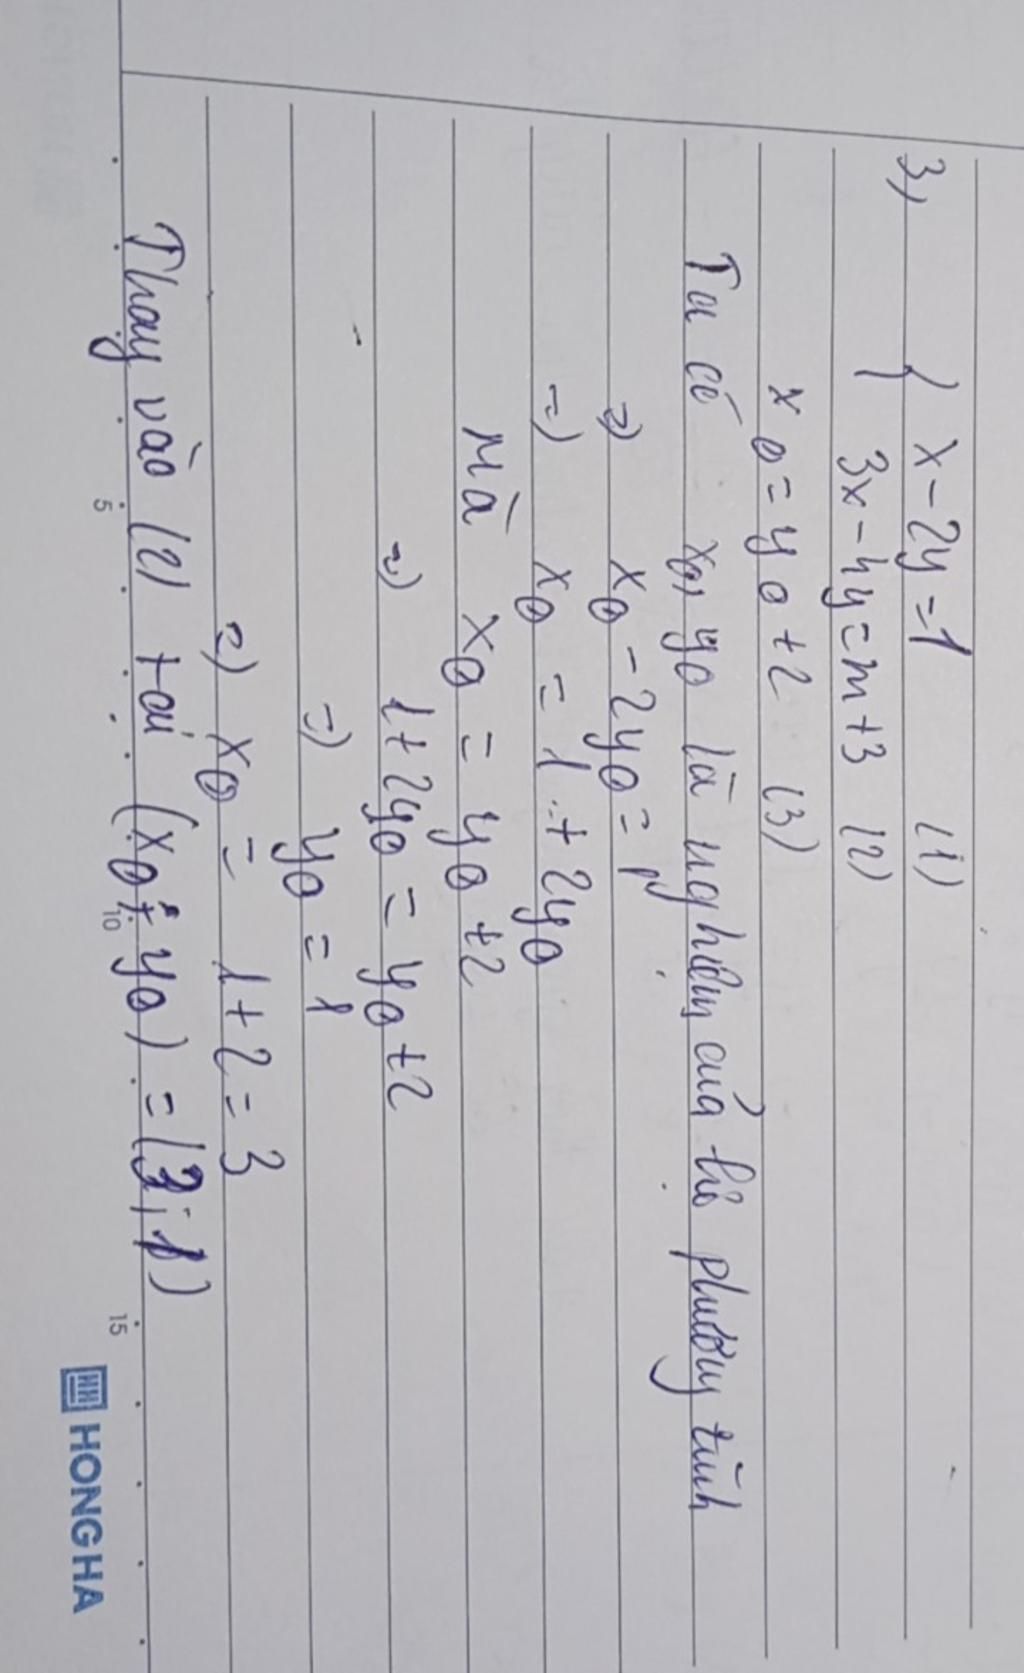 3, { x - 2y = 1 (1)
3x - 4y = m + 3 (2)
x0 = y0 + 2 (3)
Ta có x0, y0 là nghiệm của hệ phương trình
=> x0 - 2y0 = 1
=> x0 = 1 + 2y0
Mà x0 = y0 + 2
=> 1 + 2y0 = y0 + 2
=> y0 = 1
=> x0 = 1 + 2 = 3
Thay vào (2) tại (x0; y0) = (3; 1)
5 10 15
HONG HA